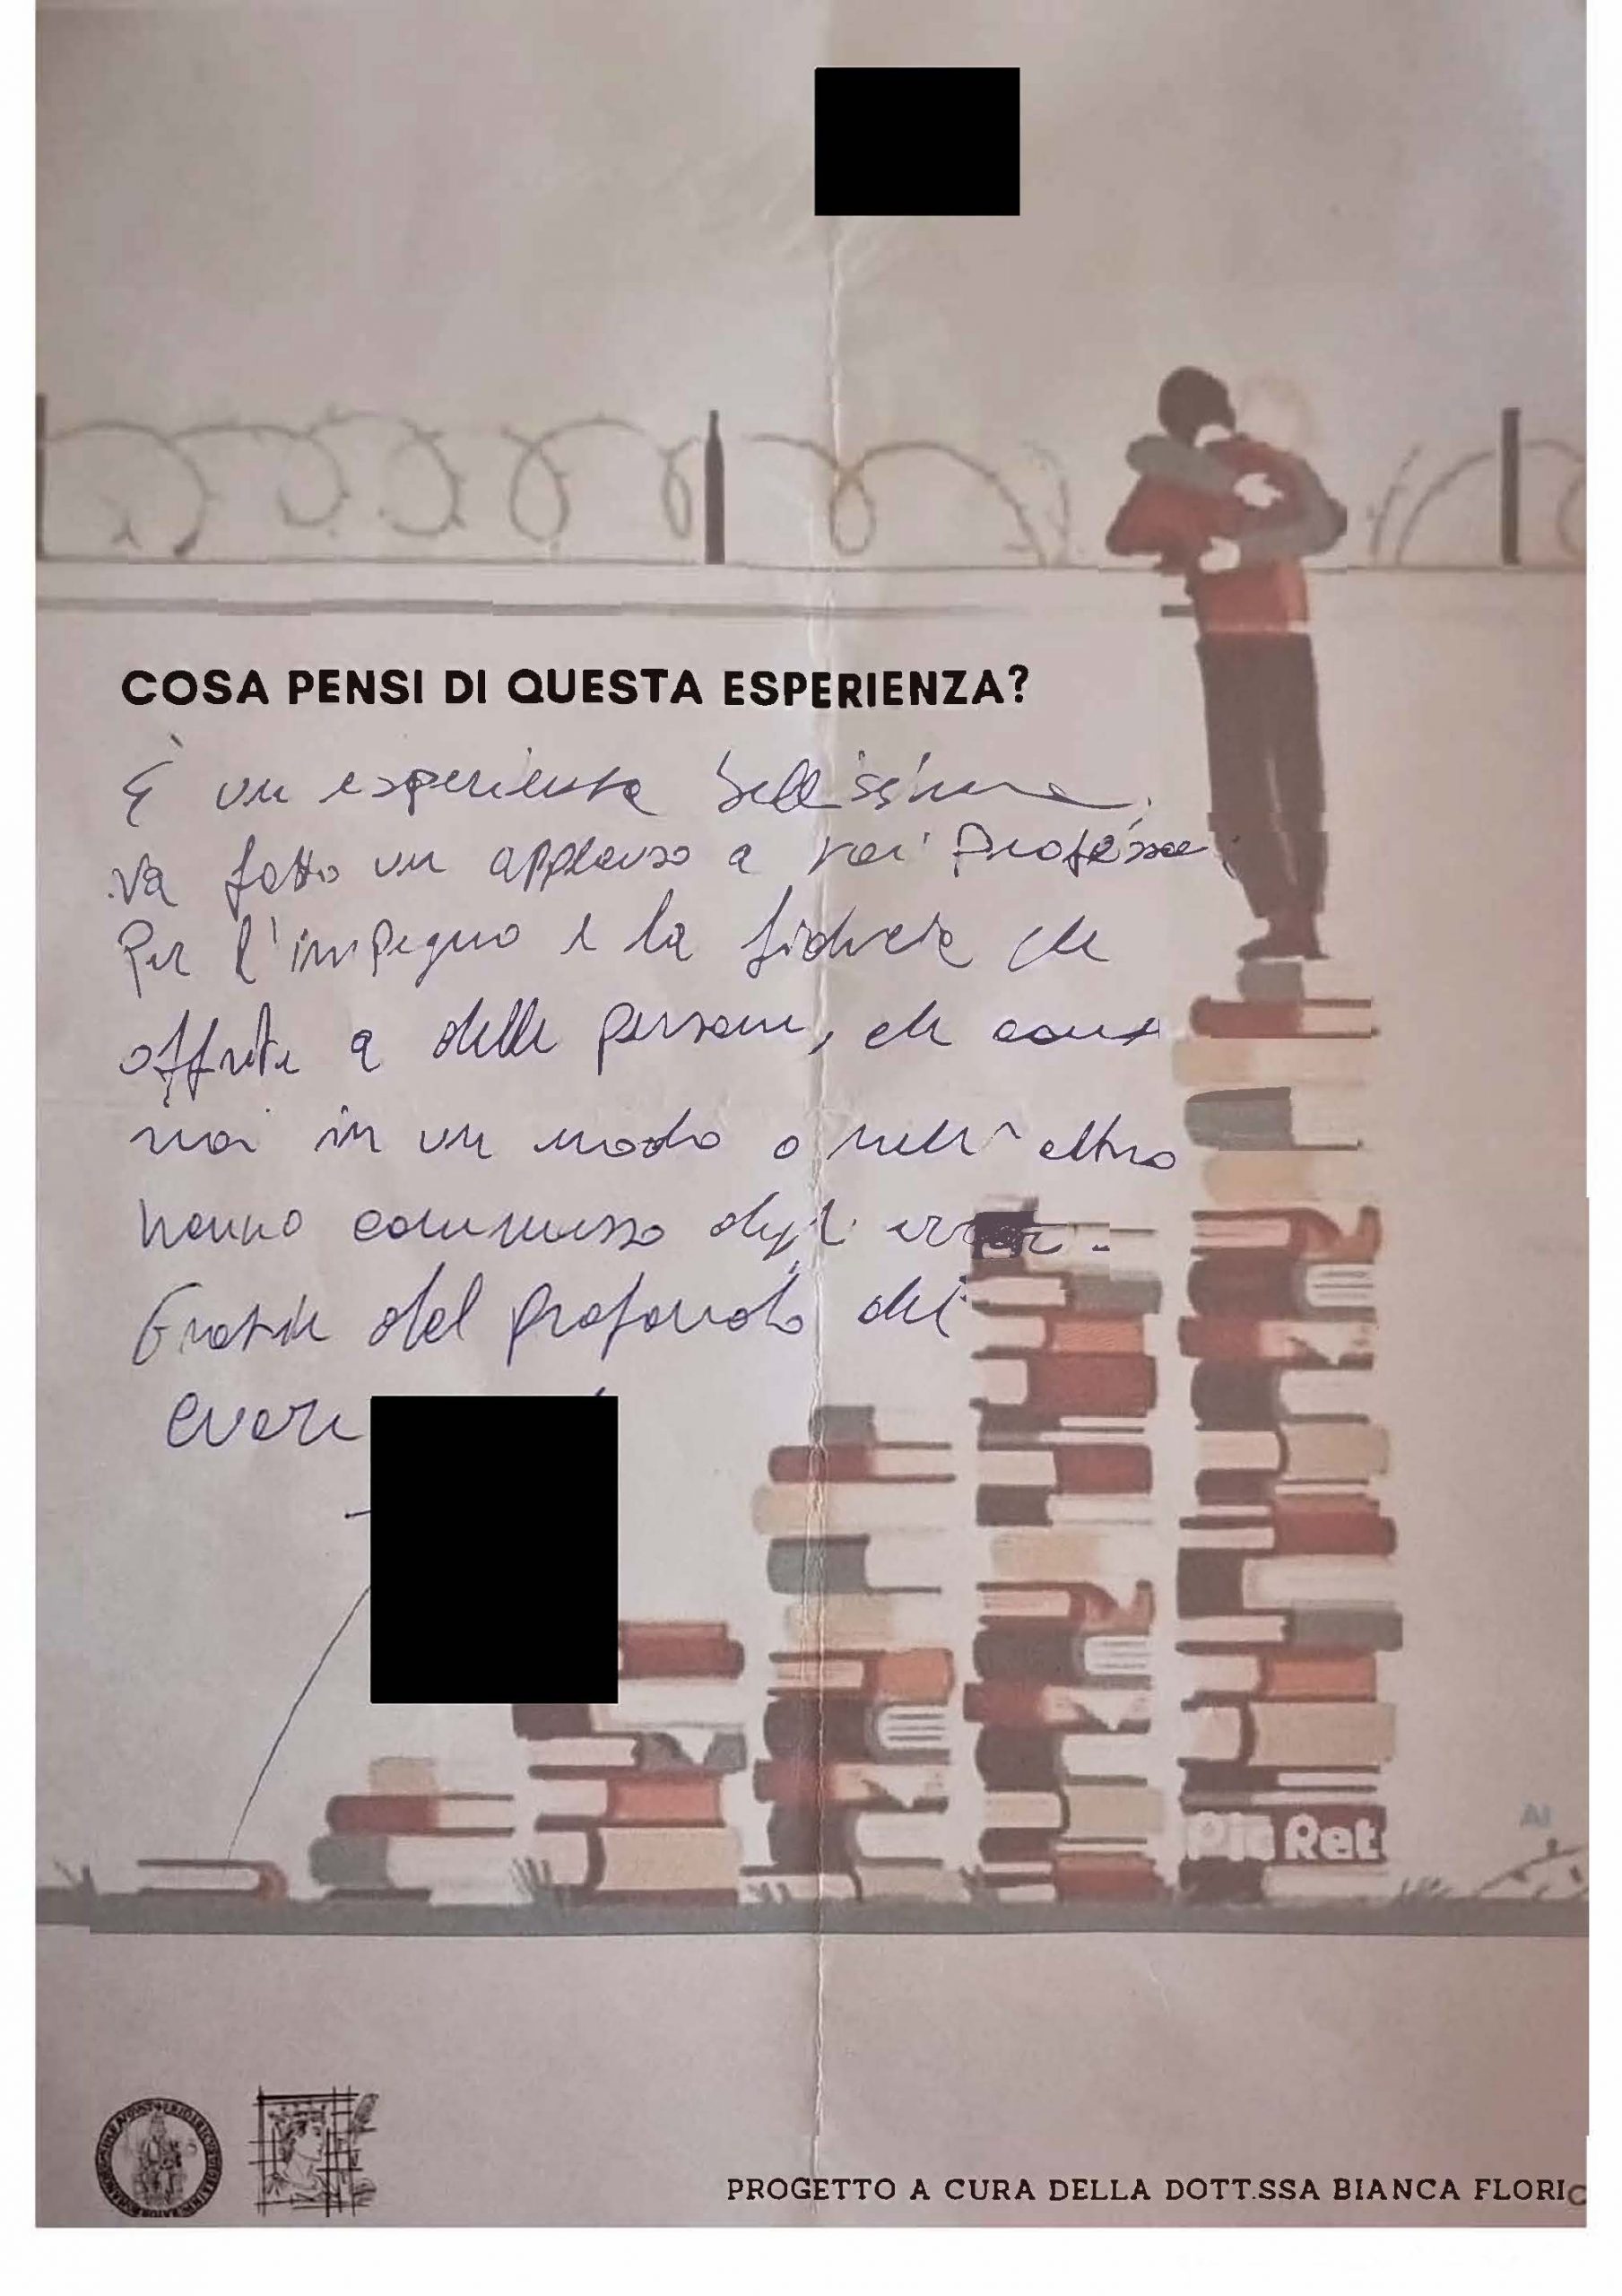 COSA PENSI DI QUESTA ESPERIENZA?
È un esperienza bellissima,
va fatto un applauso a voi
Per l'impegno e la fiducia che
offrite a delle persone, che come
noi in un modo o nell' altro
hanno commesso degli errori.
Grazie dal profondo del
cuore
Pic Ret
AI
PROGETTO A CURA DELLA DOTT.SSA BIANCA FLORIC